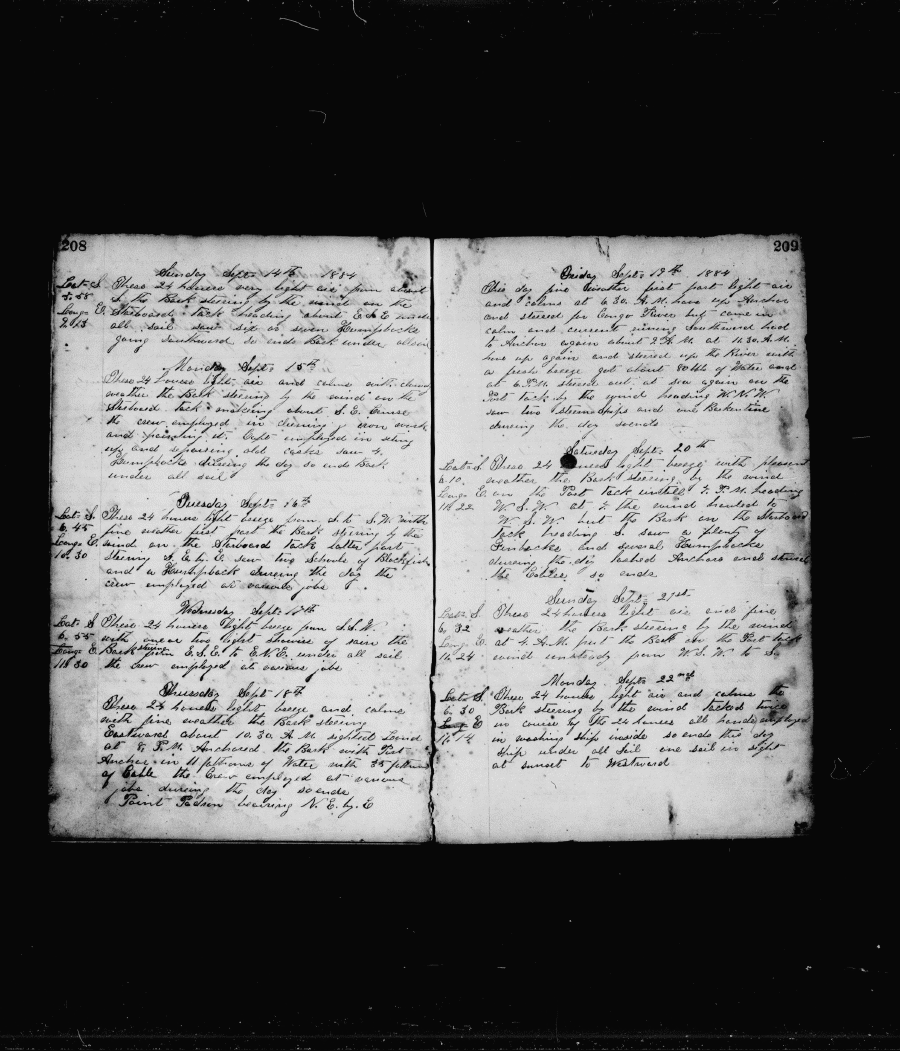 208
Sunday Sept. 14th 1884
Lat. S. These 24 houres very light air from about
5.55 S the Bark steering by the wind on the
Longe E. Starboard tack heading about E S E under
9.13 all sail saw six or seven Humpbacks
going southward so ends Bark under all sail
Monday Sept. 15th
These 24 houres light air and calms with cloudy
weather the Bark steering by the wind on the
Starboard tack making about S. E. Course
the crew employed in cleaning iron work
and painting it. Capt employed in seting
up and repairing old casks saw 4
Humpbacks during the day so ends Bark
under all sail
Tuesday Sept. 16th
Lat. S. These 24 houres light breeze from S. to S.W. with
6.45 fine weather first part the Bark steering by the
Longe E. wind on the Starboard tack latter part
10.30 steering S. E. by E. saw two Schools of Blackfish
and a Humpback during the day the
crew employed at various jobs
Wednesday Sept. 17th
Lat. S These 24 houres light breeze from S.S.W.
6.55 with one or two light showers of rain the
Longe E. Bark steering from E.S.E. to E.N.E. under all sail
11.30 the crew employed at various jobs
Thursday Sept 18th
These 24 houres light breeze and calms
with fine weather the Bark steering
Eastward about 10.30 A.M. sighted Land
at 8 P.M. Anchored the Bark with Port
Anchor in 11 fathoms of Water with 35 fathoms
of Cable the Crew employed at various
jobs during the day so ends
Point Padron bearing N. E. by E
209
Friday Sept. 19th 1884
This day fine weather first part light air
and calms at 6.30 A.M. hove up Anchor
and steered for Congo River but came in
calm and current runing Southward had
to Anchor again about 9 A.M. at 11.30 A.M.
hove up again and steered up the River with
a fresh breeze got about 80 bbls of Water and
at 6 P.M. steered out at sea again on the
Port tack by the wind heading W.N.W.
saw two Steam Ships and one Barkentine
during the day so ends
Saturday Sept. 20th
Lat. S. These 24 houres light breeze with pleasent
6.10 weather the Bark steering by the wind
Longe E. on the Port tack untill 7. P.M. heading
11.22 W.S.W. at 7 the wind hauled to
W.S.W. put the Bark on the Starboard
tack heading S. saw a plenty of
Finbacks and several Humpbacks
during the day lashed Anchors and stowed
the Cables so ends
Sunday Sept. 21st
Lat. S. These 24 houres light air and fine
6.32 weather the Bark steering by the wind
Longe E. at 4. A.M. put the Bark on the Port tack
11.24 wind unsteady from W.S.W. to So
Monday Sept. 22nd
Lat. S. These 24 houres light air and calms the
6.30 Bark steering by the wind tacked twice
Longe E in course of the 24 houres all hands employed
11.14 in washing Ship inside so ends this day
Ship under all Sail one sail in sight
at sunset to Westward